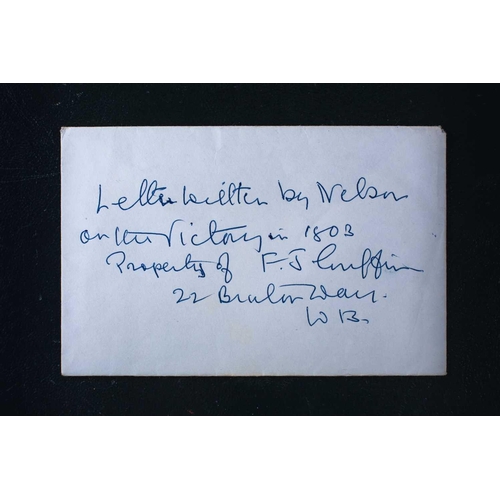 Letter written by Nelson
on the Victory in 1803
Property of F. J Griffin
22 Bruton Way.
W 13.